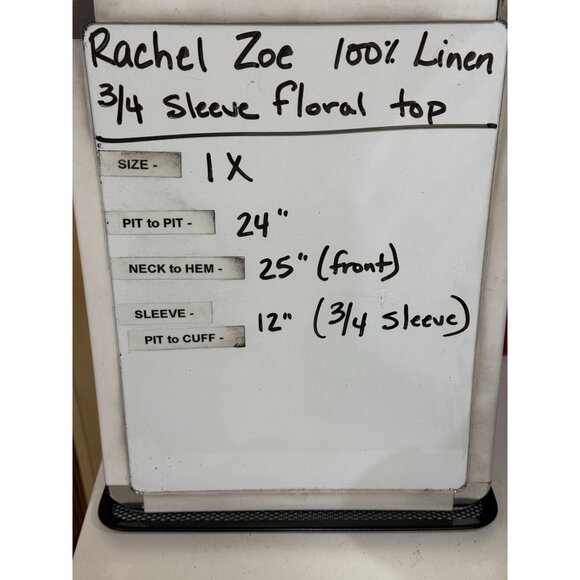 Rachel Zoe 100% Linen
3/4 Sleeve floral top
SIZE - 1X
PIT to PIT - 24"
NECK to HEM - 25" (front)
SLEEVE -
PIT to CUFF - 12" (3/4 Sleeve)